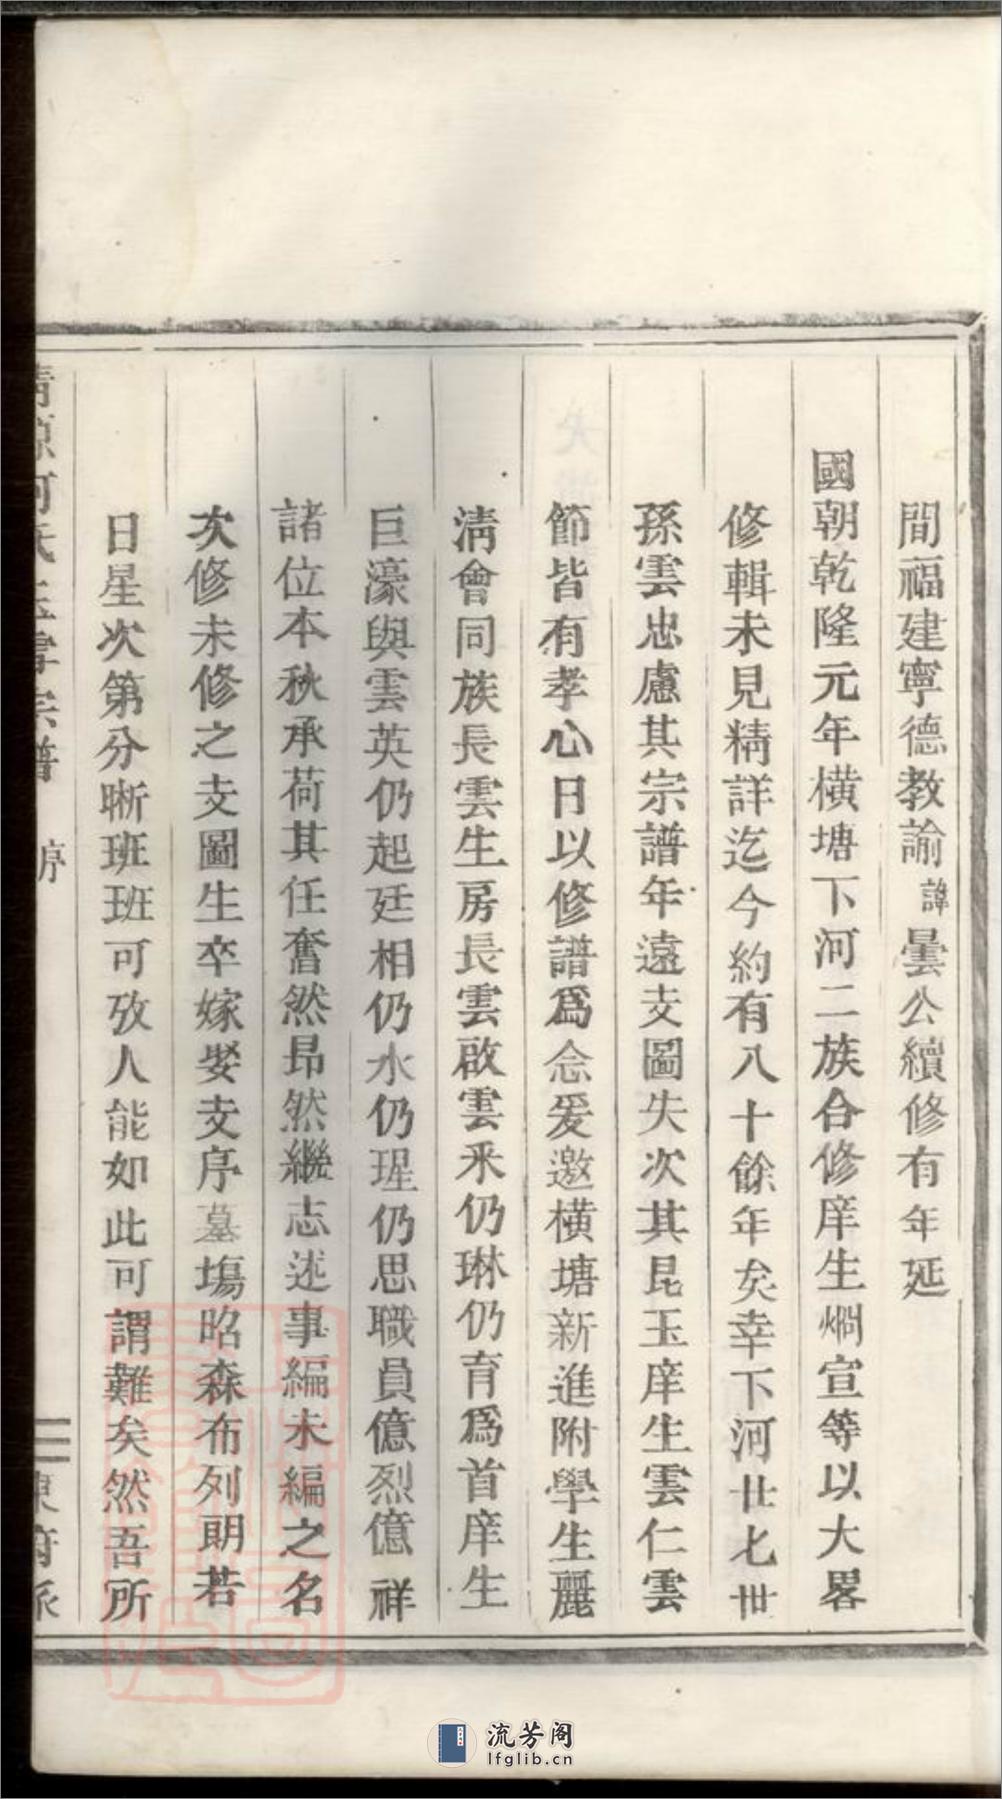 間福建寧德教諭諱曇公續修有年延
國朝乾隆元年橫塘下河二族合修庠生烱宣等以大畧
修輯未見精詳迄今約有八十餘年矣幸下河廿七世
孫雲忠慮其宗譜年遠支圖失次其昆玉庠生雲仁雲
節皆有孝心日以修譜爲念爰邀橫塘新進附學生麗
淸會同族長雲生房長雲啟雲釆仍琳仍育爲首庠生
巨濠與雲英仍起廷相仍水仍瑆仍思職員億烈億祥
諸位本秋承荷其任奮然昂然繼志述事編未編之名
次修未修之支圖生卒嫁娶支序墓塲昭森布列朗若
日星次第分晰班班可攷人能如此可謂難矣然吾所
序
三
東府派
流芳阁
lfglib.cn